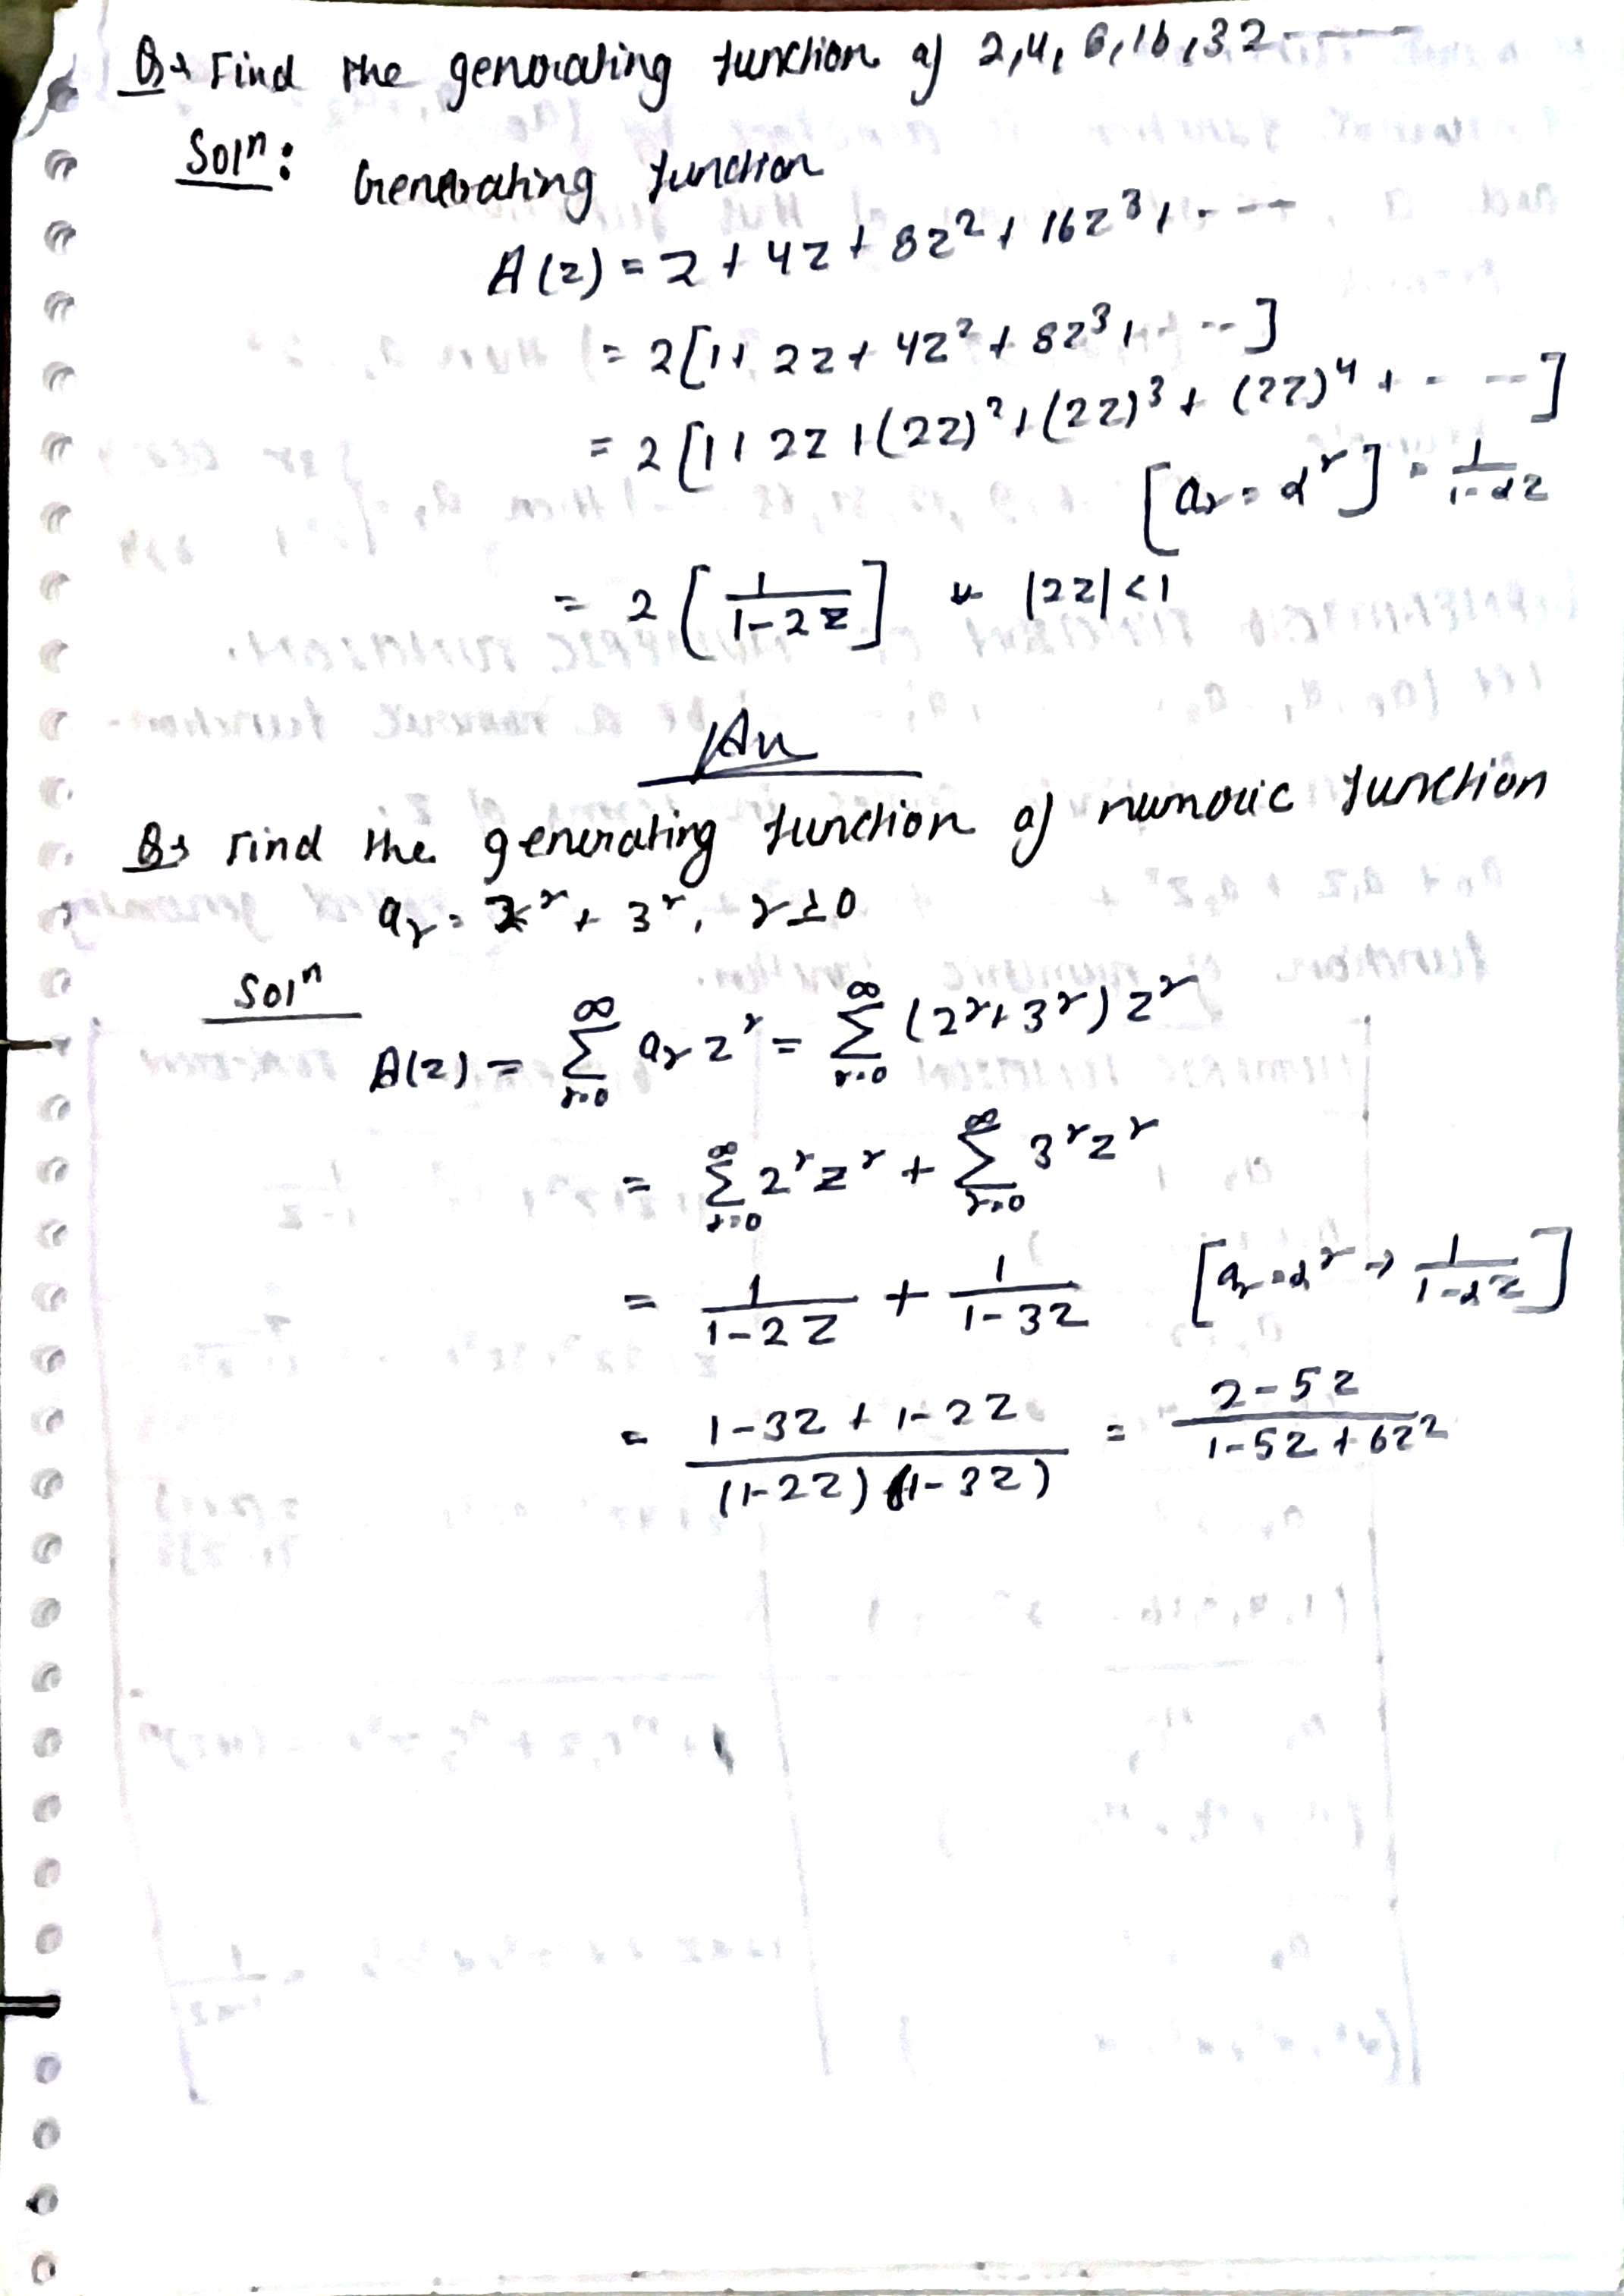 Q→ Find the generating function of 2,4,8,16,32-----
Solⁿ: Generating function
A(z) = 2 + 4z + 8z² + 16z³ + ----
= 2[1+ 2z + 4z² + 8z³ + ----]
= 2[1+ 2z + (2z)² + (2z)³ + (2z)⁴ + - --]
[aᵣ = αʳ] = 1/(1-αz)
= 2 [1/(1-2z)] |2z| < 1
Ans
Q→ Find the generating function of numeric function
aᵣ = 2ʳ + 3ʳ, r≥0
Solⁿ
A(z) = ∑_{r=0}^{∞} aᵣ zʳ = ∑_{r=0}^{∞} (2ʳ+3ʳ) zʳ
= ∑_{r=0}^{∞} 2ʳzʳ + ∑_{r=0}^{∞} 3ʳzʳ
= 1/(1-2z) + 1/(1-3z) [aᵣ=αʳ → 1/(1-αz)]
= (1-3z + 1-2z)/((1-2z)(1-3z)) = (2-5z)/(1-5z+6z²)